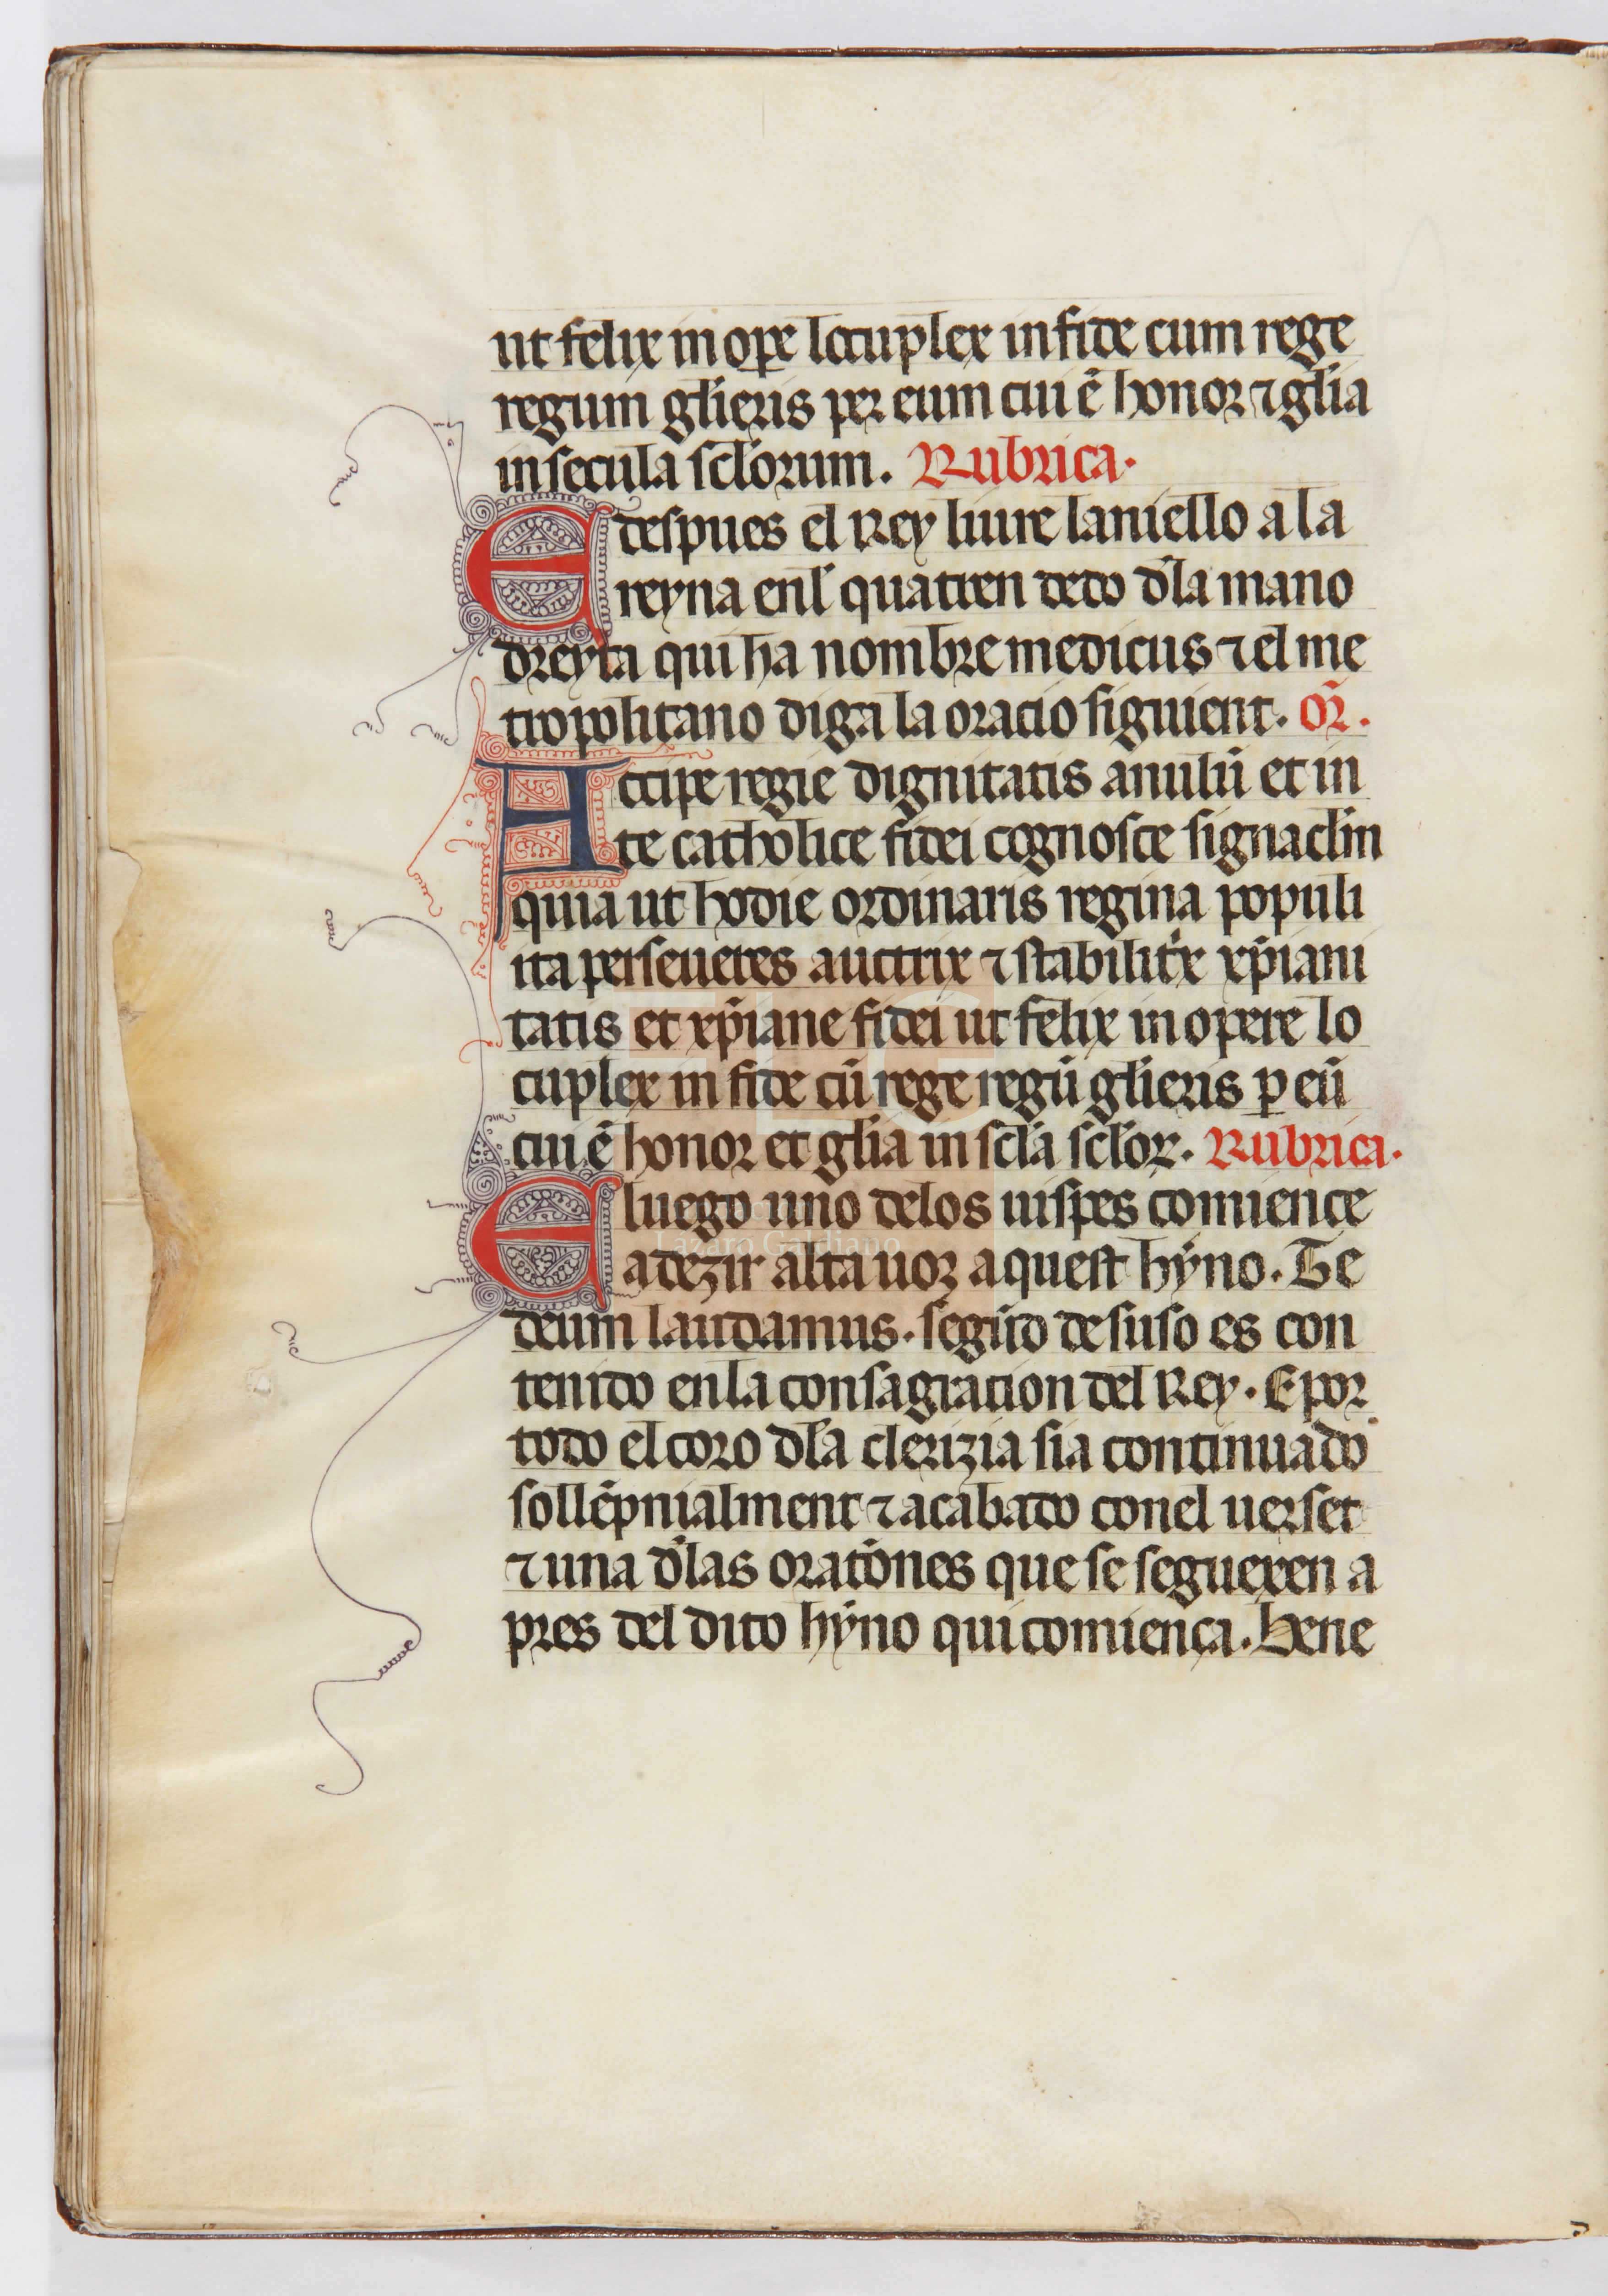 ut felix in oꝑe locuplex in fide cum rege
regum gl̄ieris per eum cui ē honor ⁊ gl̄ia
in secula scl̄orum. Rubrica.
E despues el Rey liure laniello a la
reyna enl̄ quatren dedo d̄la mano
dreyta qui ha nombre medicus ⁊ el me
tropolitano diga la oracio siguient. or̄.
Accipe regie dignitatis anulū et in
te catholice fidei cognosce signacl̄m
quia ut hodie ordinaris regina populi
ita perseueres auctrix ⁊ stabilitⁱx xp̄iani
tatis et xp̄iane fidei ut felix in opere lo
cuplex in fide cū rege regū gl̄ieris p eū
cui ē honor et gl̄ia in scl̄a scl̄oꝝ. Rubrica.
E luego uno delos uispes comience
a dezir alta uoz aquest hȳno. Te
deum laudamus. segūdo de suso es con
tenido en la consagracion del Rey. E por
todo el coro d̄la clerizia sia continuado
sollēpnialment ⁊ acabado con el uerset
⁊ una d̄las oratōnes que se seguexen a
pres del dito hȳno qui comiença. Bene
Lázaro Galdiano